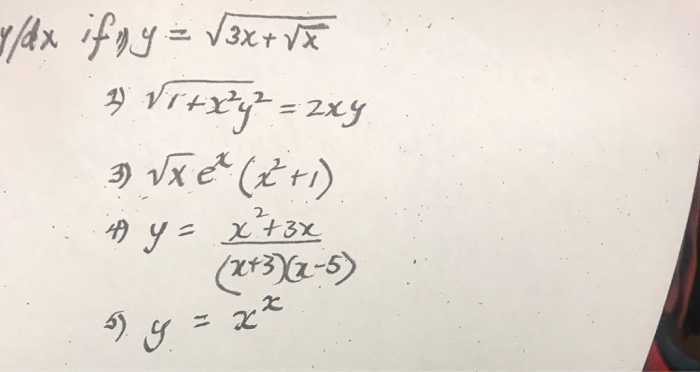 y/dx if 1) y = √(3x + √x)
2) √(1 + x²y²) = 2xy
3) √x eˣ (x² + 1)
4) y = (x² + 3x)/((x+3)(x-5))
5) y = xˣ